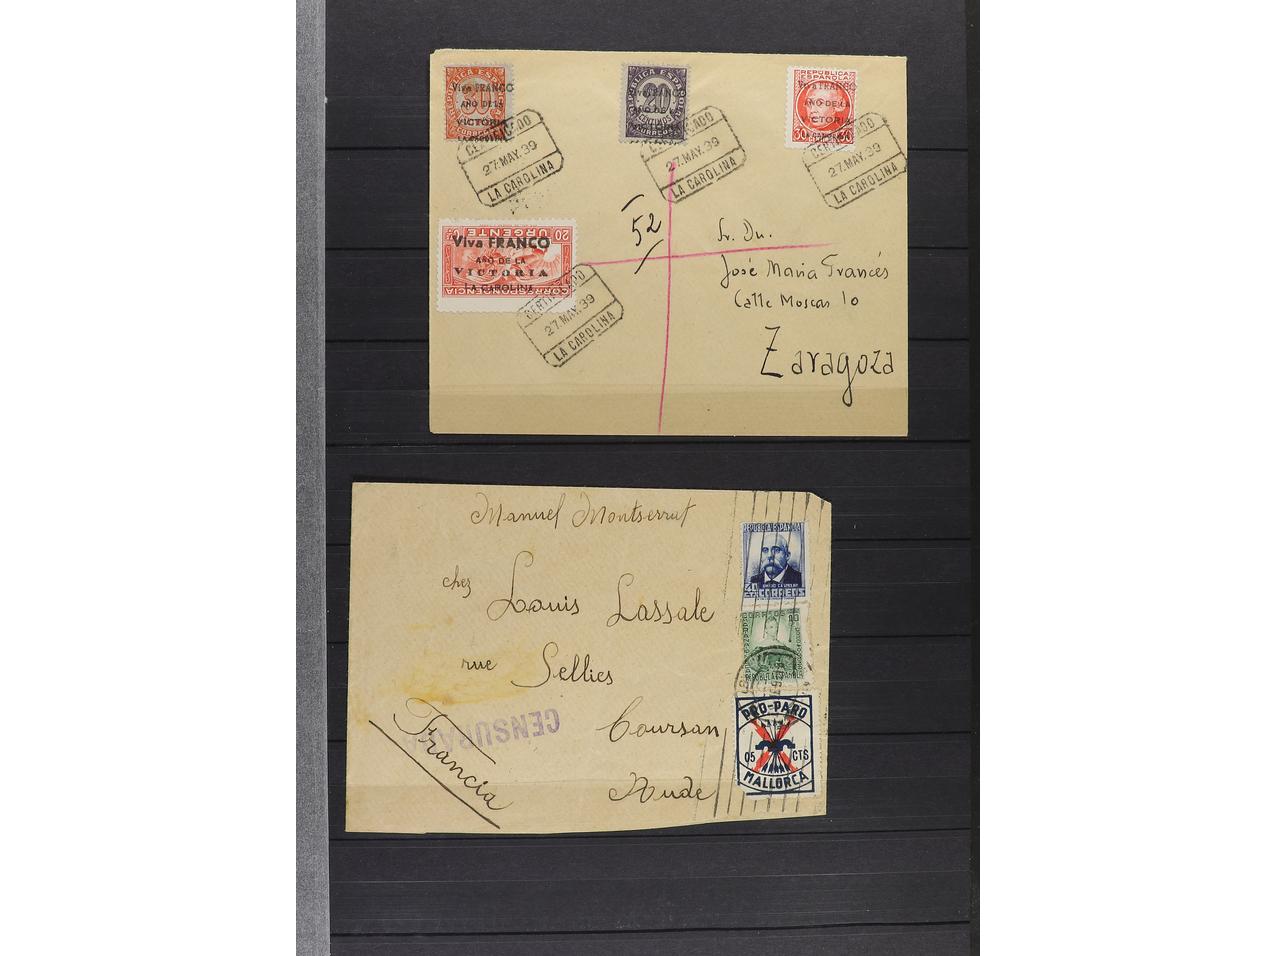 REPUBLICA ESPAÑOLA
30
Viva FRANCO
AÑO DE LA
VICTORIA
LA CAROLINA
CORREOS
REPUBLICA ESPAÑOLA
20
CENTIMOS
CORREOS
REPUBLICA
ESPAÑOLA
Viva FRANCO
AÑO DE LA
VICTORIA
LA CAROLINA
30
CERTIFICADO
27.MAY.39
LA CAROLINA
CERTIFICADO
27.MAY.39
LA CAROLINA
CERTIFICADO
27.MAY.39
LA CAROLINA
20 URGENTE
CORRESPONDENCIA
Viva FRANCO
AÑO DE LA
VICTORIA
LA CAROLINA
CERTIFICADO
27.MAY.39
LA CAROLINA
52
Sr. Dn.
José Maria Francés
Calle Moscas 10
Zaragoza
Manuel Montserrat
chez Louis Lassale
rue Sellies
Coursan
Aude
Francia
CENSURADA
REPUBLICA ESPAÑOLA
CORREOS
10
REPUBLICA ESPAÑOLA
PRO-PARO
05 CTS
MALLORCA